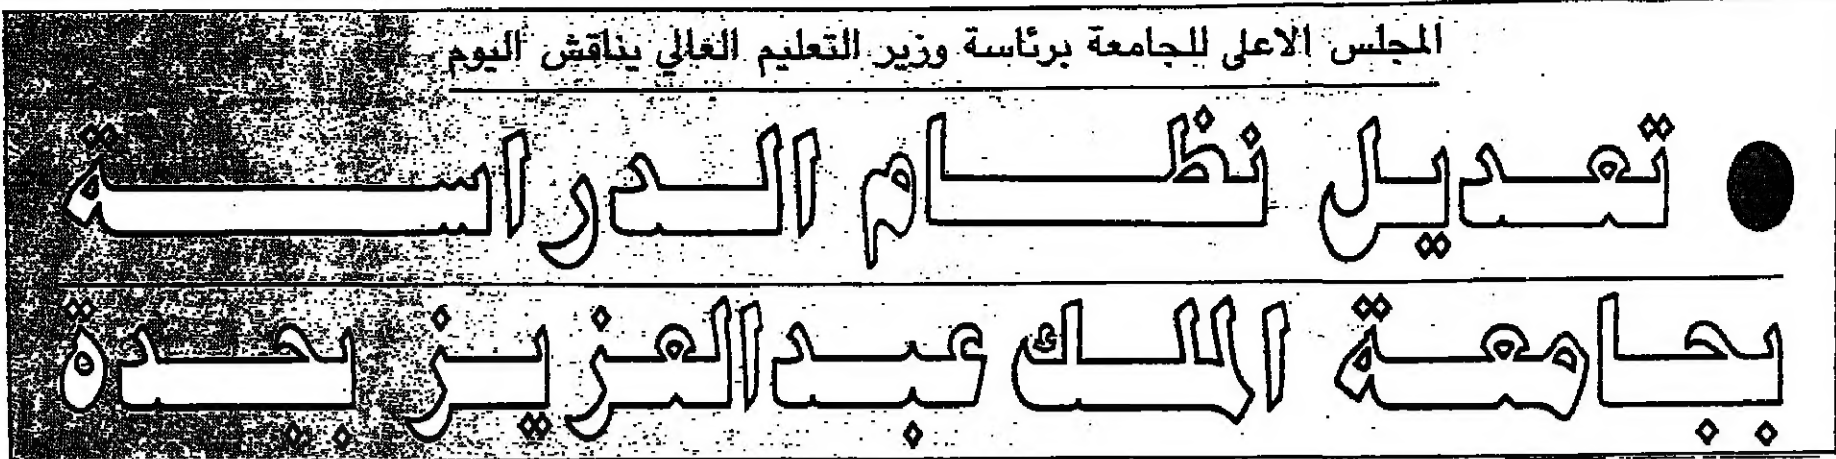 المجلس الاعلى للجامعة برئاسة وزير التعليم العالي يناقش اليوم
● تعديل نظام الدراسة
بجامعة الملك عبدالعزيز بجدة